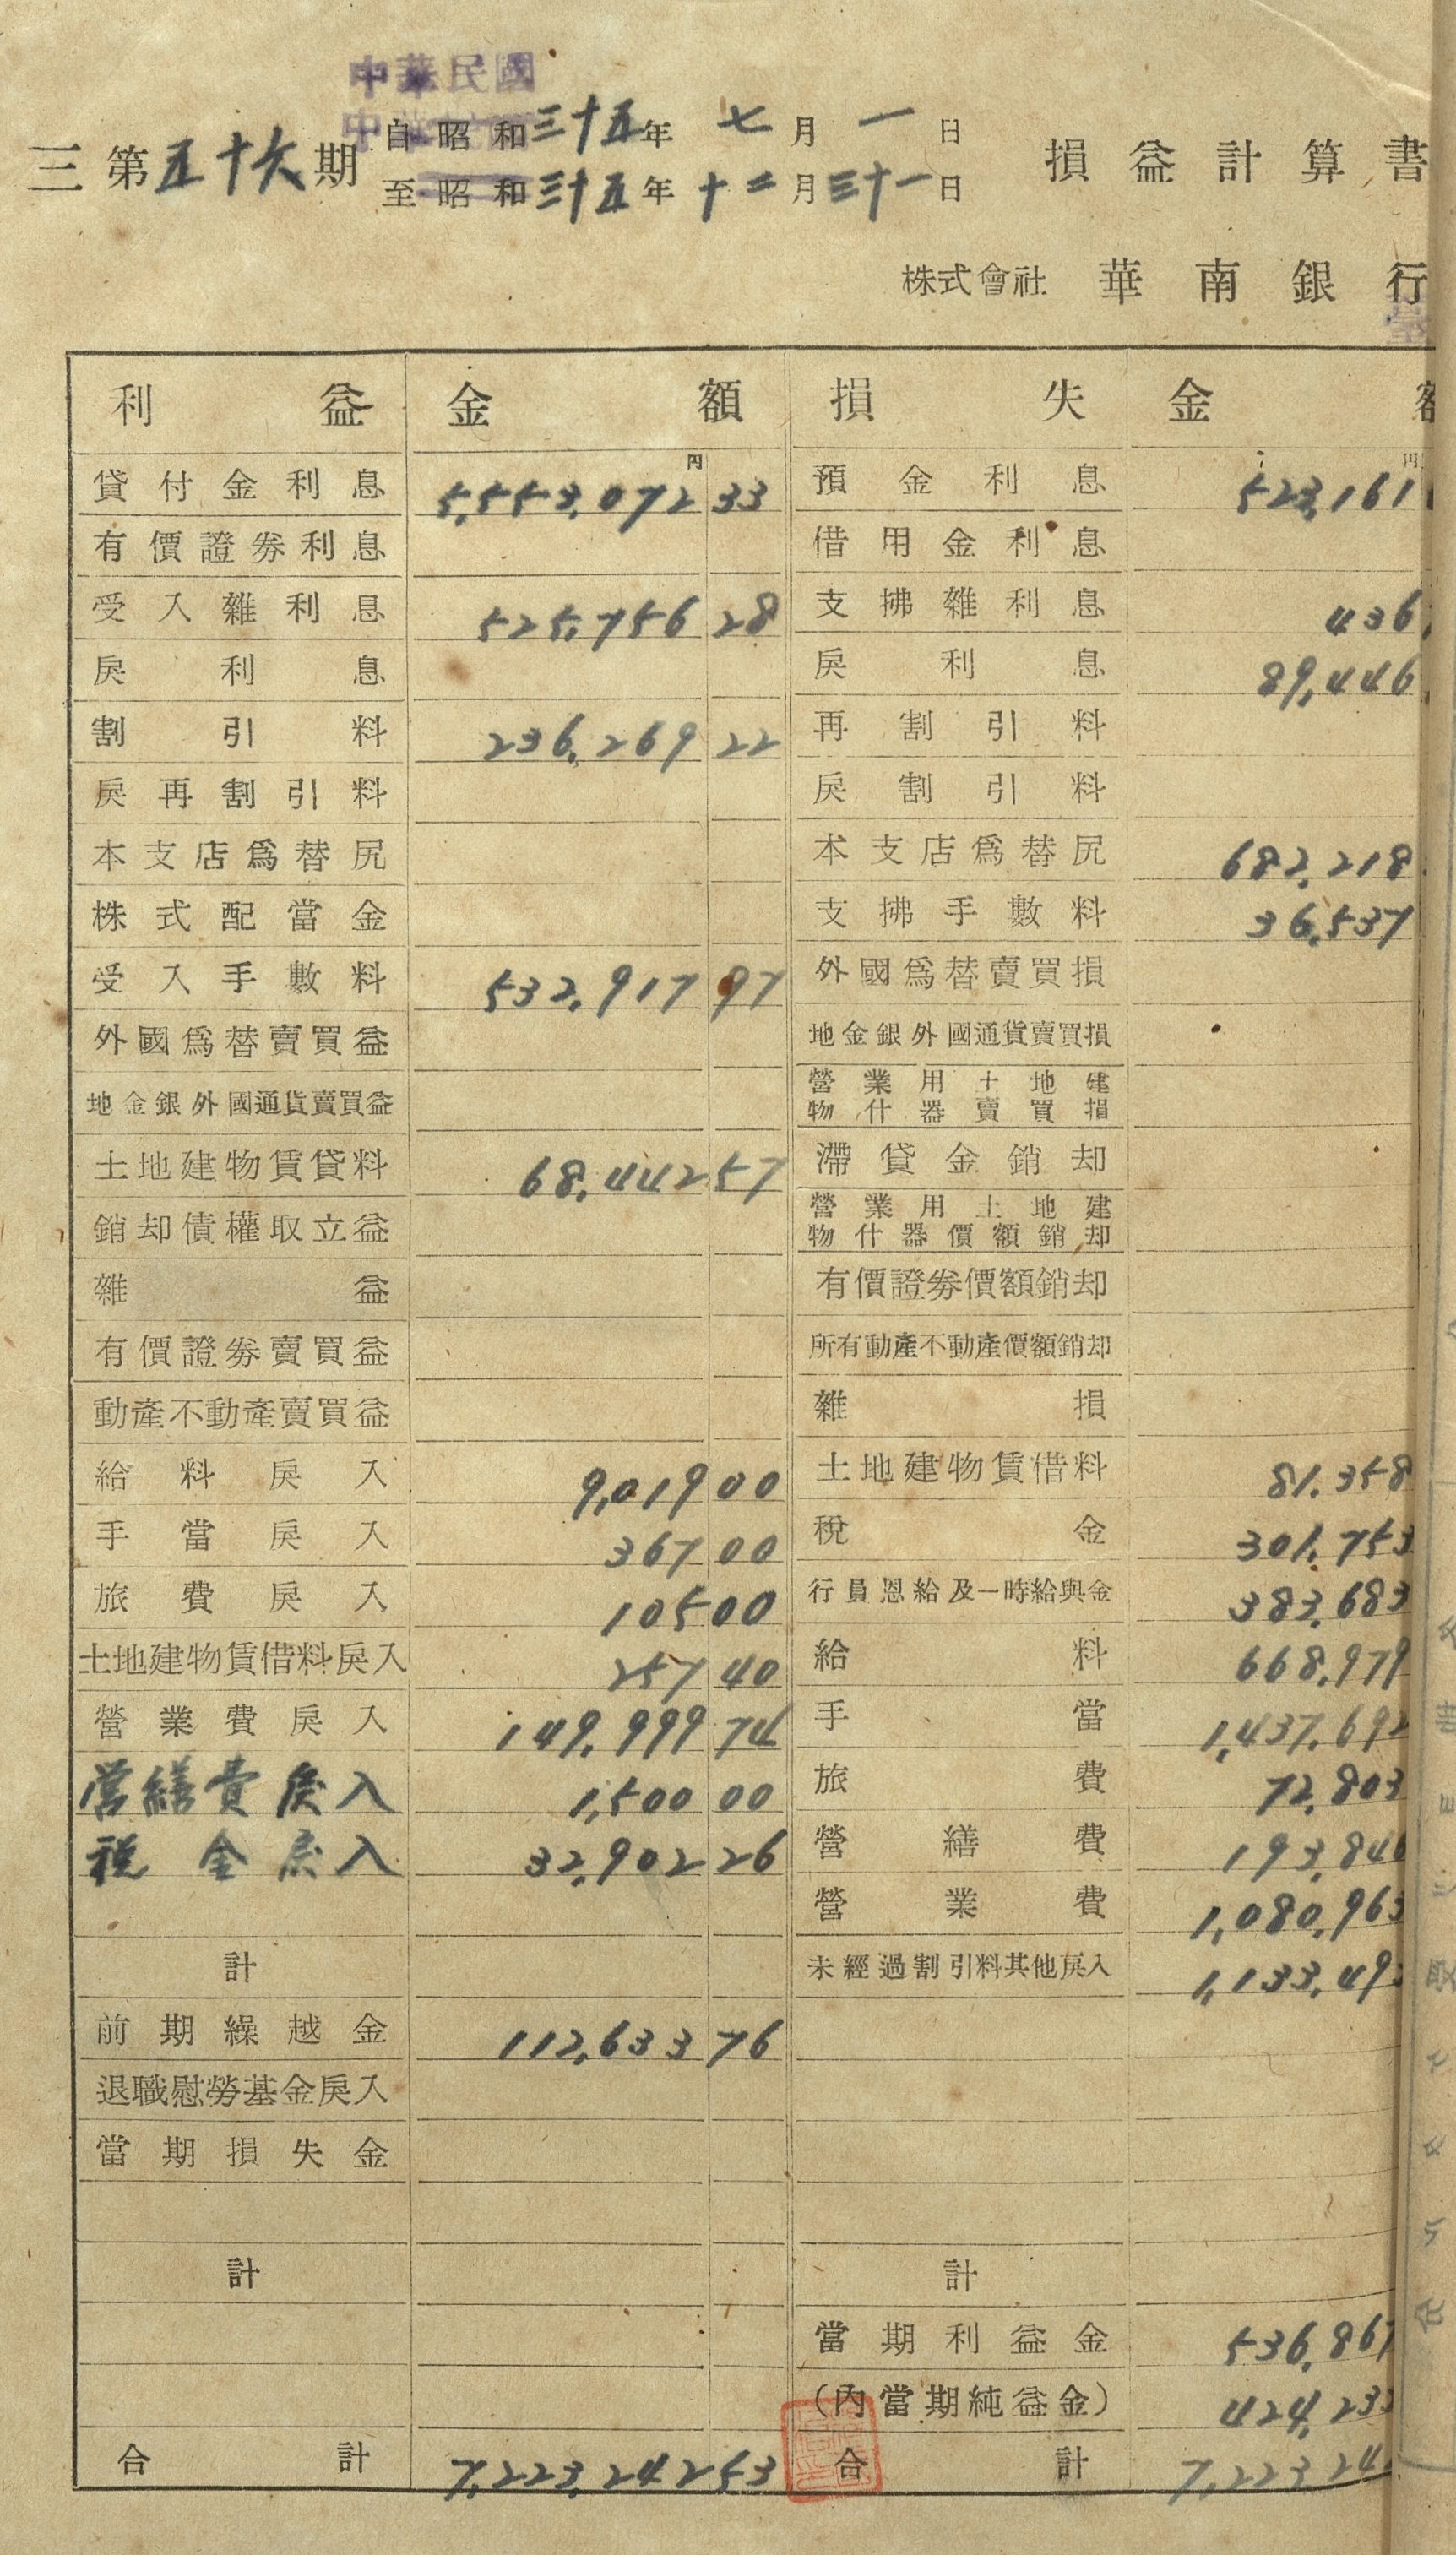 中華民國
三 第五十六期 自昭和三十五年 七月 一日 損益計算書
至昭和三十五年十二月三十一日
株式會社 華南銀行
利益 金額 損失 金
円 円
貸付金利息 5,553,072 33 預金利息 523,161
有價證劵利息 借用金利息
受入雜利息 525,756 28 支拂雜利息 436
戾利息 戾利息 89,446
割引料 236,269 22 再割引料
戾再割引料 戾割引料
本支店爲替尻 本支店爲替尻 682,218
株式配當金 支拂手數料 36,537
受入手數料 532,917 97 外國爲替賣買損
外國爲替賣買益 地金銀外國通貨賣買損
地金銀外國通貨賣買益 營業用土地建物什器賣買損
土地建物賃貸料 68,442 57 滯貸金銷却
銷却債權取立益 營業用土地建物什器價額銷却
雜益 有價證劵價額銷却
有價證劵賣買益 所有動產不動產價額銷却
動產不動產賣買益 雜損
給料戾入 9,019 00 土地建物賃借料 81,358
手當戾入 367 00 稅金 301,753
旅費戾入 105 00 行員恩給及一時給與金 383,683
土地建物賃借料戾入 257 40 給料 668,979
營業費戾入 149,999 74 手當 1,437,692
営繕費戾入 1,500 00 旅費 72,803
税金戾入 32,902 26 營繕費 193,846
營業費 1,080,963
計 未經過割引料其他戾入 1,133,493
前期繰越金 112,633 76
退職慰勞基金戾入
當期損失金
計 計
當期利益金 536,867
(內當期純益金) 424,233
合計 7,223,242 53 合計 7,223,24